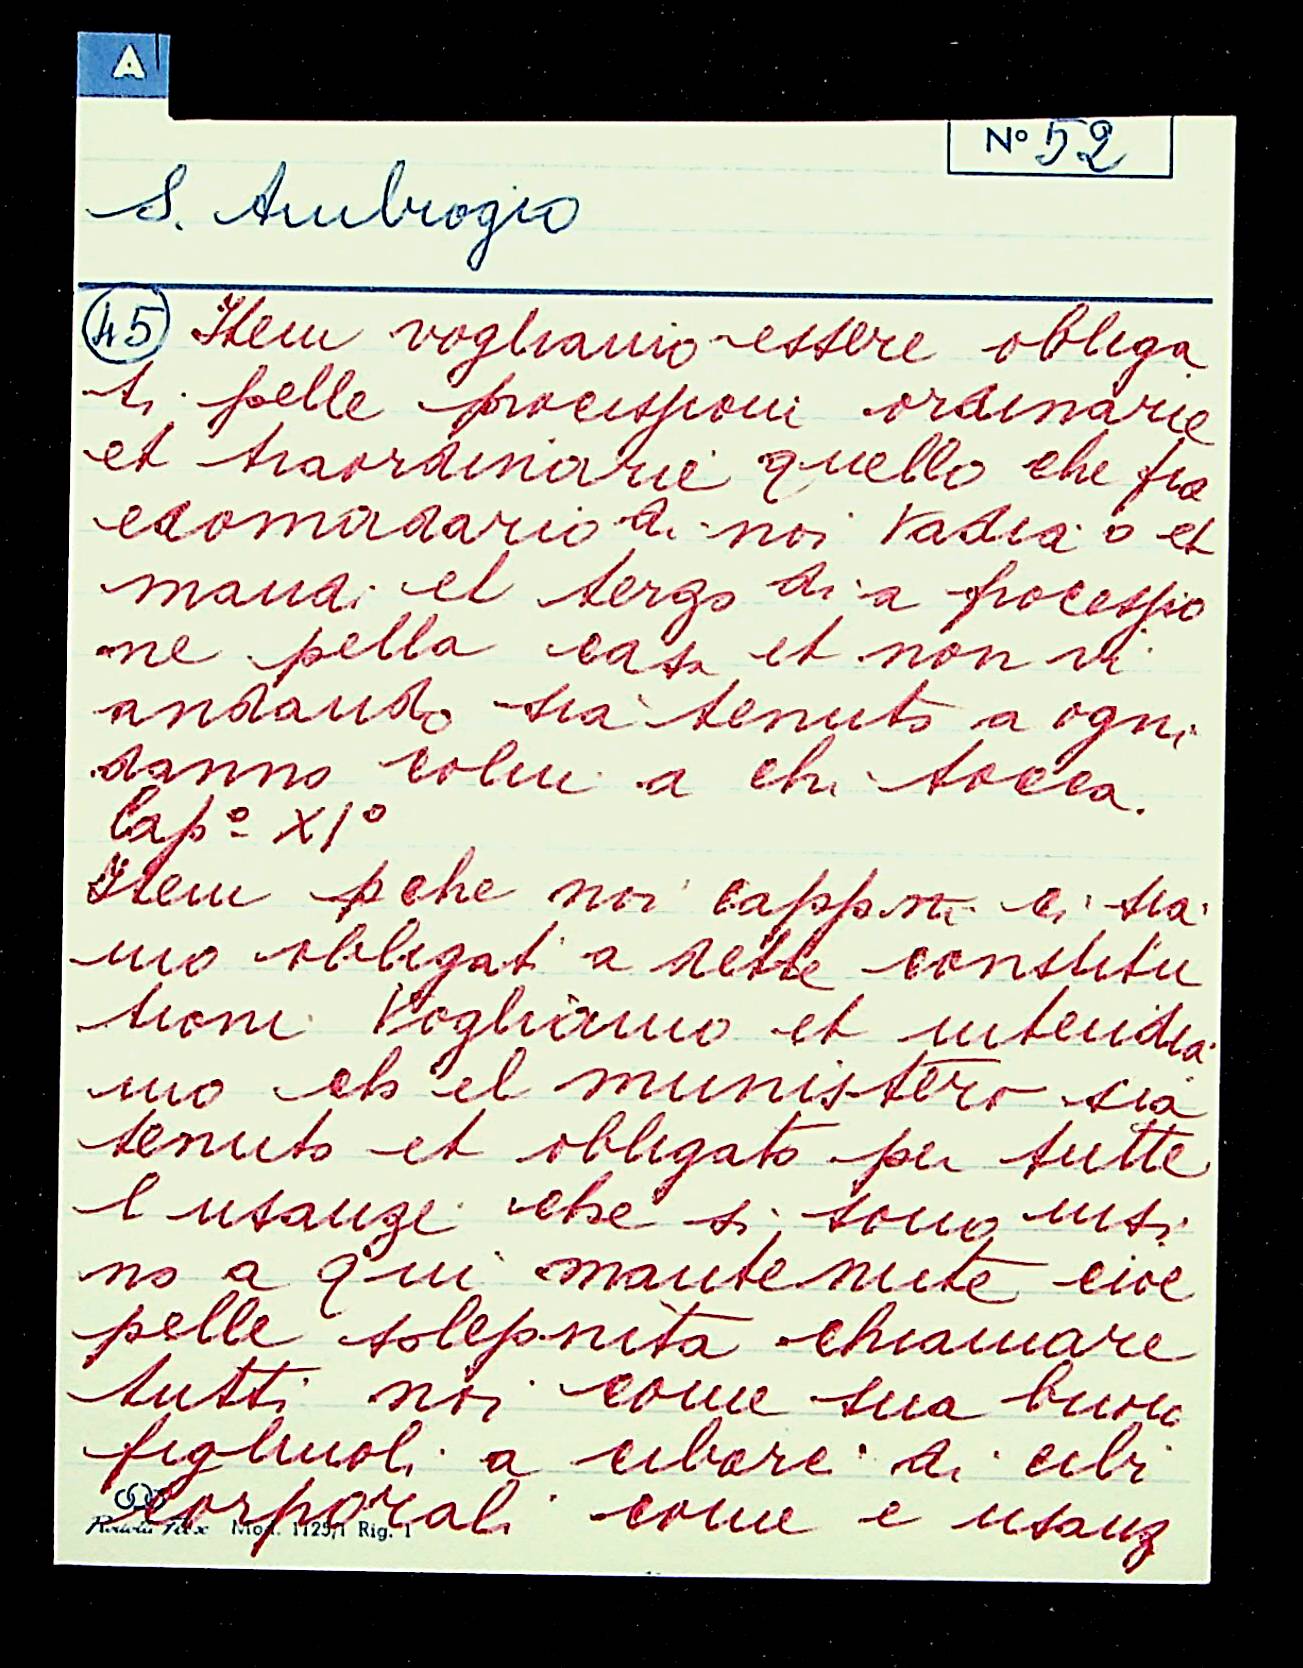 A
N° 52
S. Ambrogio
45 Item vogliamo essere obliga
ti pelle processioni ordinarie
et straordinarie quello che fia
edomadario di noi Vadia o et
mandi el terzo di a processio
ne pella casa et non vi
andando sia tenuto a ogni
danno colui a chi tocca.
Cap° XI°
Item pche noi cappni ci sia
mo obbligati a dette constitu
tioni Vogliamo et intendia
mo ch el munistero sia
tenuto et obligato per tutte
l usanze che si sono insi
no a qui mantenute cioe
pelle solepnità chiamare
tutti noi come sua buoni
figliuoli a cibarci di cibi
corporali come e usanz
Mod. 1129/1 Rig. 1